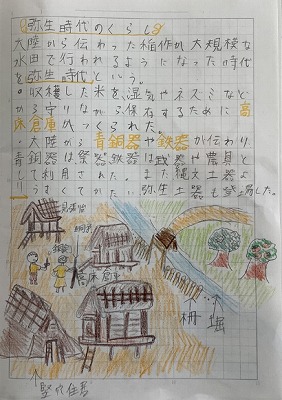 弥生時代のくらし
大陸から伝わった稲作が大規模な
水田で行われるようになった時代
を弥生時代という。
・収穫した米を湿気やネズミなど
から守りながら保存するために高
床倉庫がつくられた。
・大陸から青銅器や鉄器が伝わり、
青銅器は祭器、鉄器は武器や農具と
して利用された。また縄文土器よ
りうすくてかたい弥生土器も登場した。
高床倉庫
柵
堀
竪穴住居